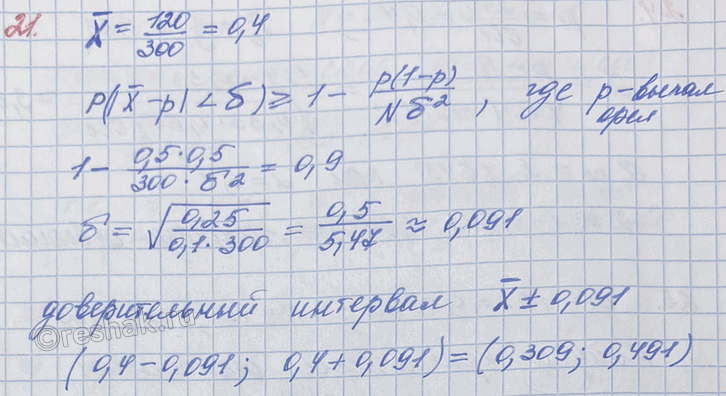 21. X̄ = 120/300 = 0,4
P(|X̄ - p| < δ) ≥ 1 - p(1-p)/Nδ², где p - выпал
орел
1 - 0,5·0,5/300·δ² = 0,9
δ = √(0,25/0,1·300) = 0,5/5,47 ≈ 0,091
доверительный интервал X̄ ± 0,091
(0,4 - 0,091; 0,4 + 0,091) = (0,309; 0,491)
©reshak.ru